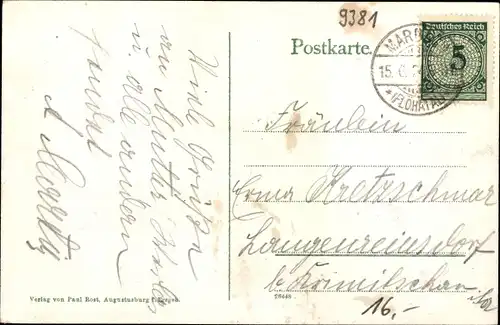 9381
Postkarte.
Deutsches Reich
5
MARB
15. 6.
(FLÖHATAL)
Viele Grüße
an Mutter
u. alle andern
sendet
A Martz
Fräulein
Erna Kretzschmar
Langenreinsdorf
b. Krimitschau i. Sa
Verlag von Paul Rost, Augustusburg i. Erzgeb.
16,-